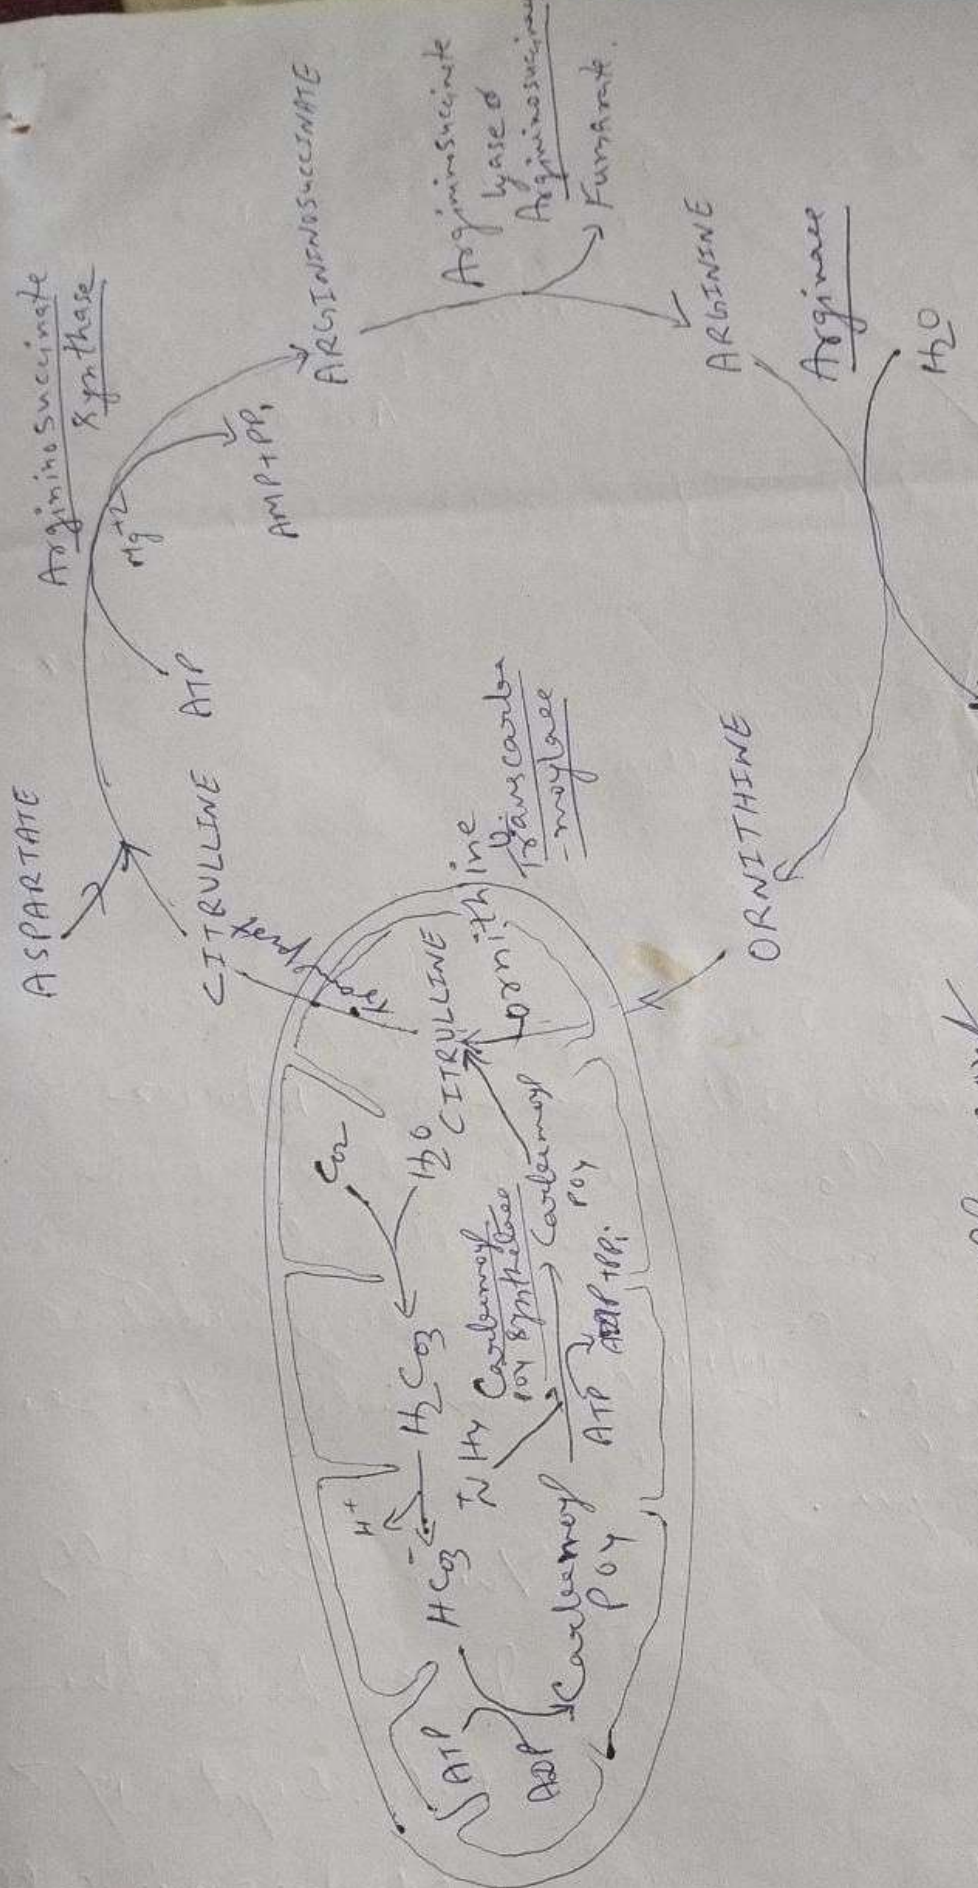 ASPARTATE
Argininosuccinate
synthase
Mg+2
ATP
AMP+PPi
CITRULLINE
ARGININOSUCCINATE
Argininosuccinate
lyase or
Argininosuccinase
Fumarate.
ARGININE
Arginase
H2O
ORNITHINE
CITRULLINE
ornithine
Transcarba
-moylase
CO2
H2O
H2CO3
H+
HCO3-
ATP
ADP
Carbamoyl
PO4
NH4
Carbamoyl
PO4 synthetase
Carbamoyl
PO4
ATP
+PPi